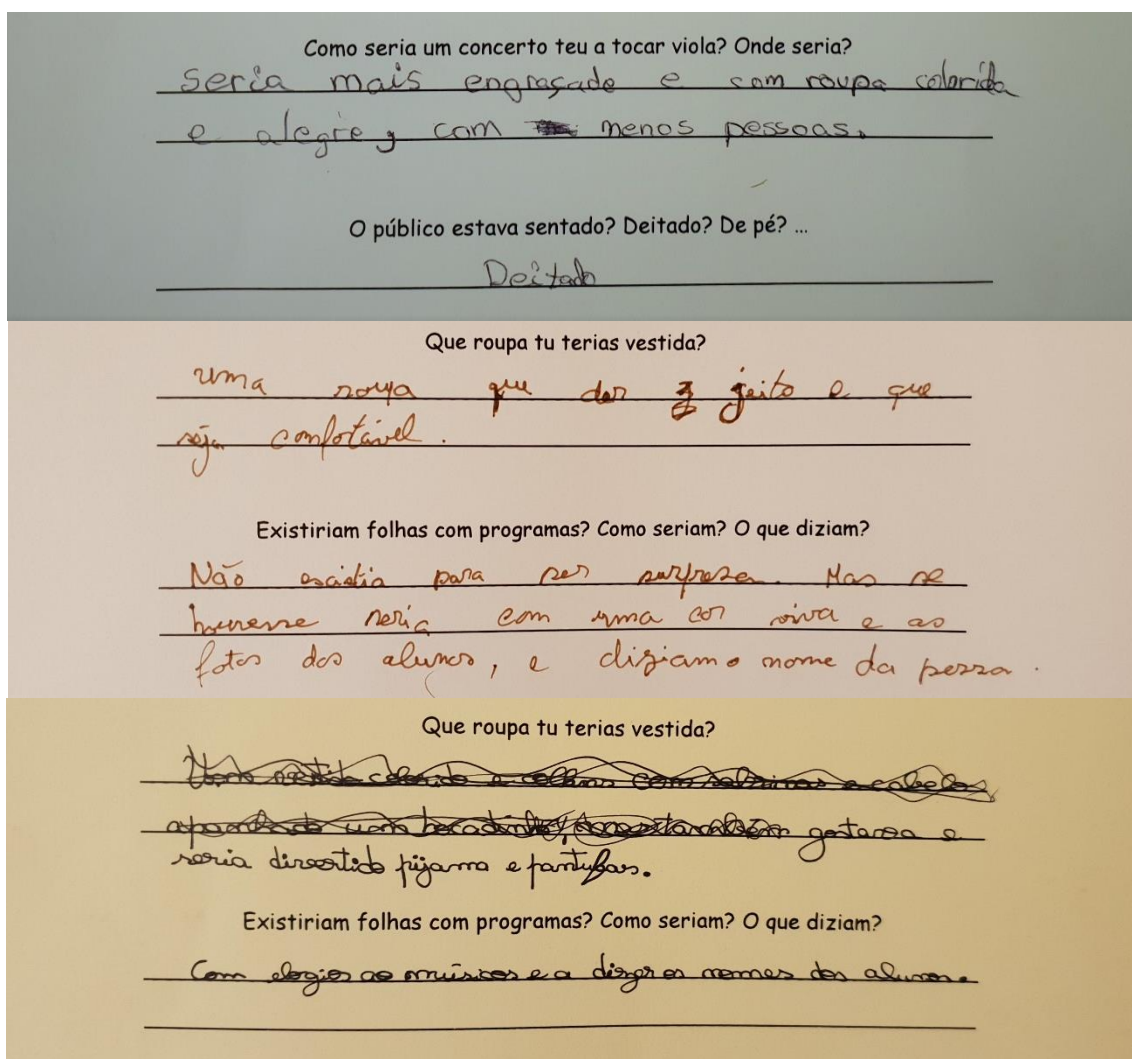 Como seria um concerto teu a tocar viola? Onde seria?
Seria mais engraçade e com roupa colorida
e alegre, com menos pessoas.
O público estava sentado? Deitado? De pé? ...
Deitado
Que roupa tu terias vestida?
uma roupa que der jeito e que
seja comfotável.
Existiriam folhas com programas? Como seriam? O que diziam?
Não escistia para ser surpresa. Mas se
houvesse seria com uma cor viva e as
fotos dos alunos, e diziam o nome da pessoa.
Que roupa tu terias vestida?
gostava e
seria divertido pijama e pantufas.
Existiriam folhas com programas? Como seriam? O que diziam?
Com elogios ao músicos e a dizer os nomes dos alunos.